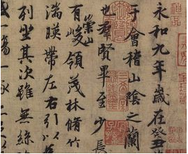 永和九年歲在癸丑
于會稽山陰之蘭
也群賢畢至少長
崇山
有峻領茂林脩竹
湍暎帶左右引以
列坐其次雖無絲
一觴一